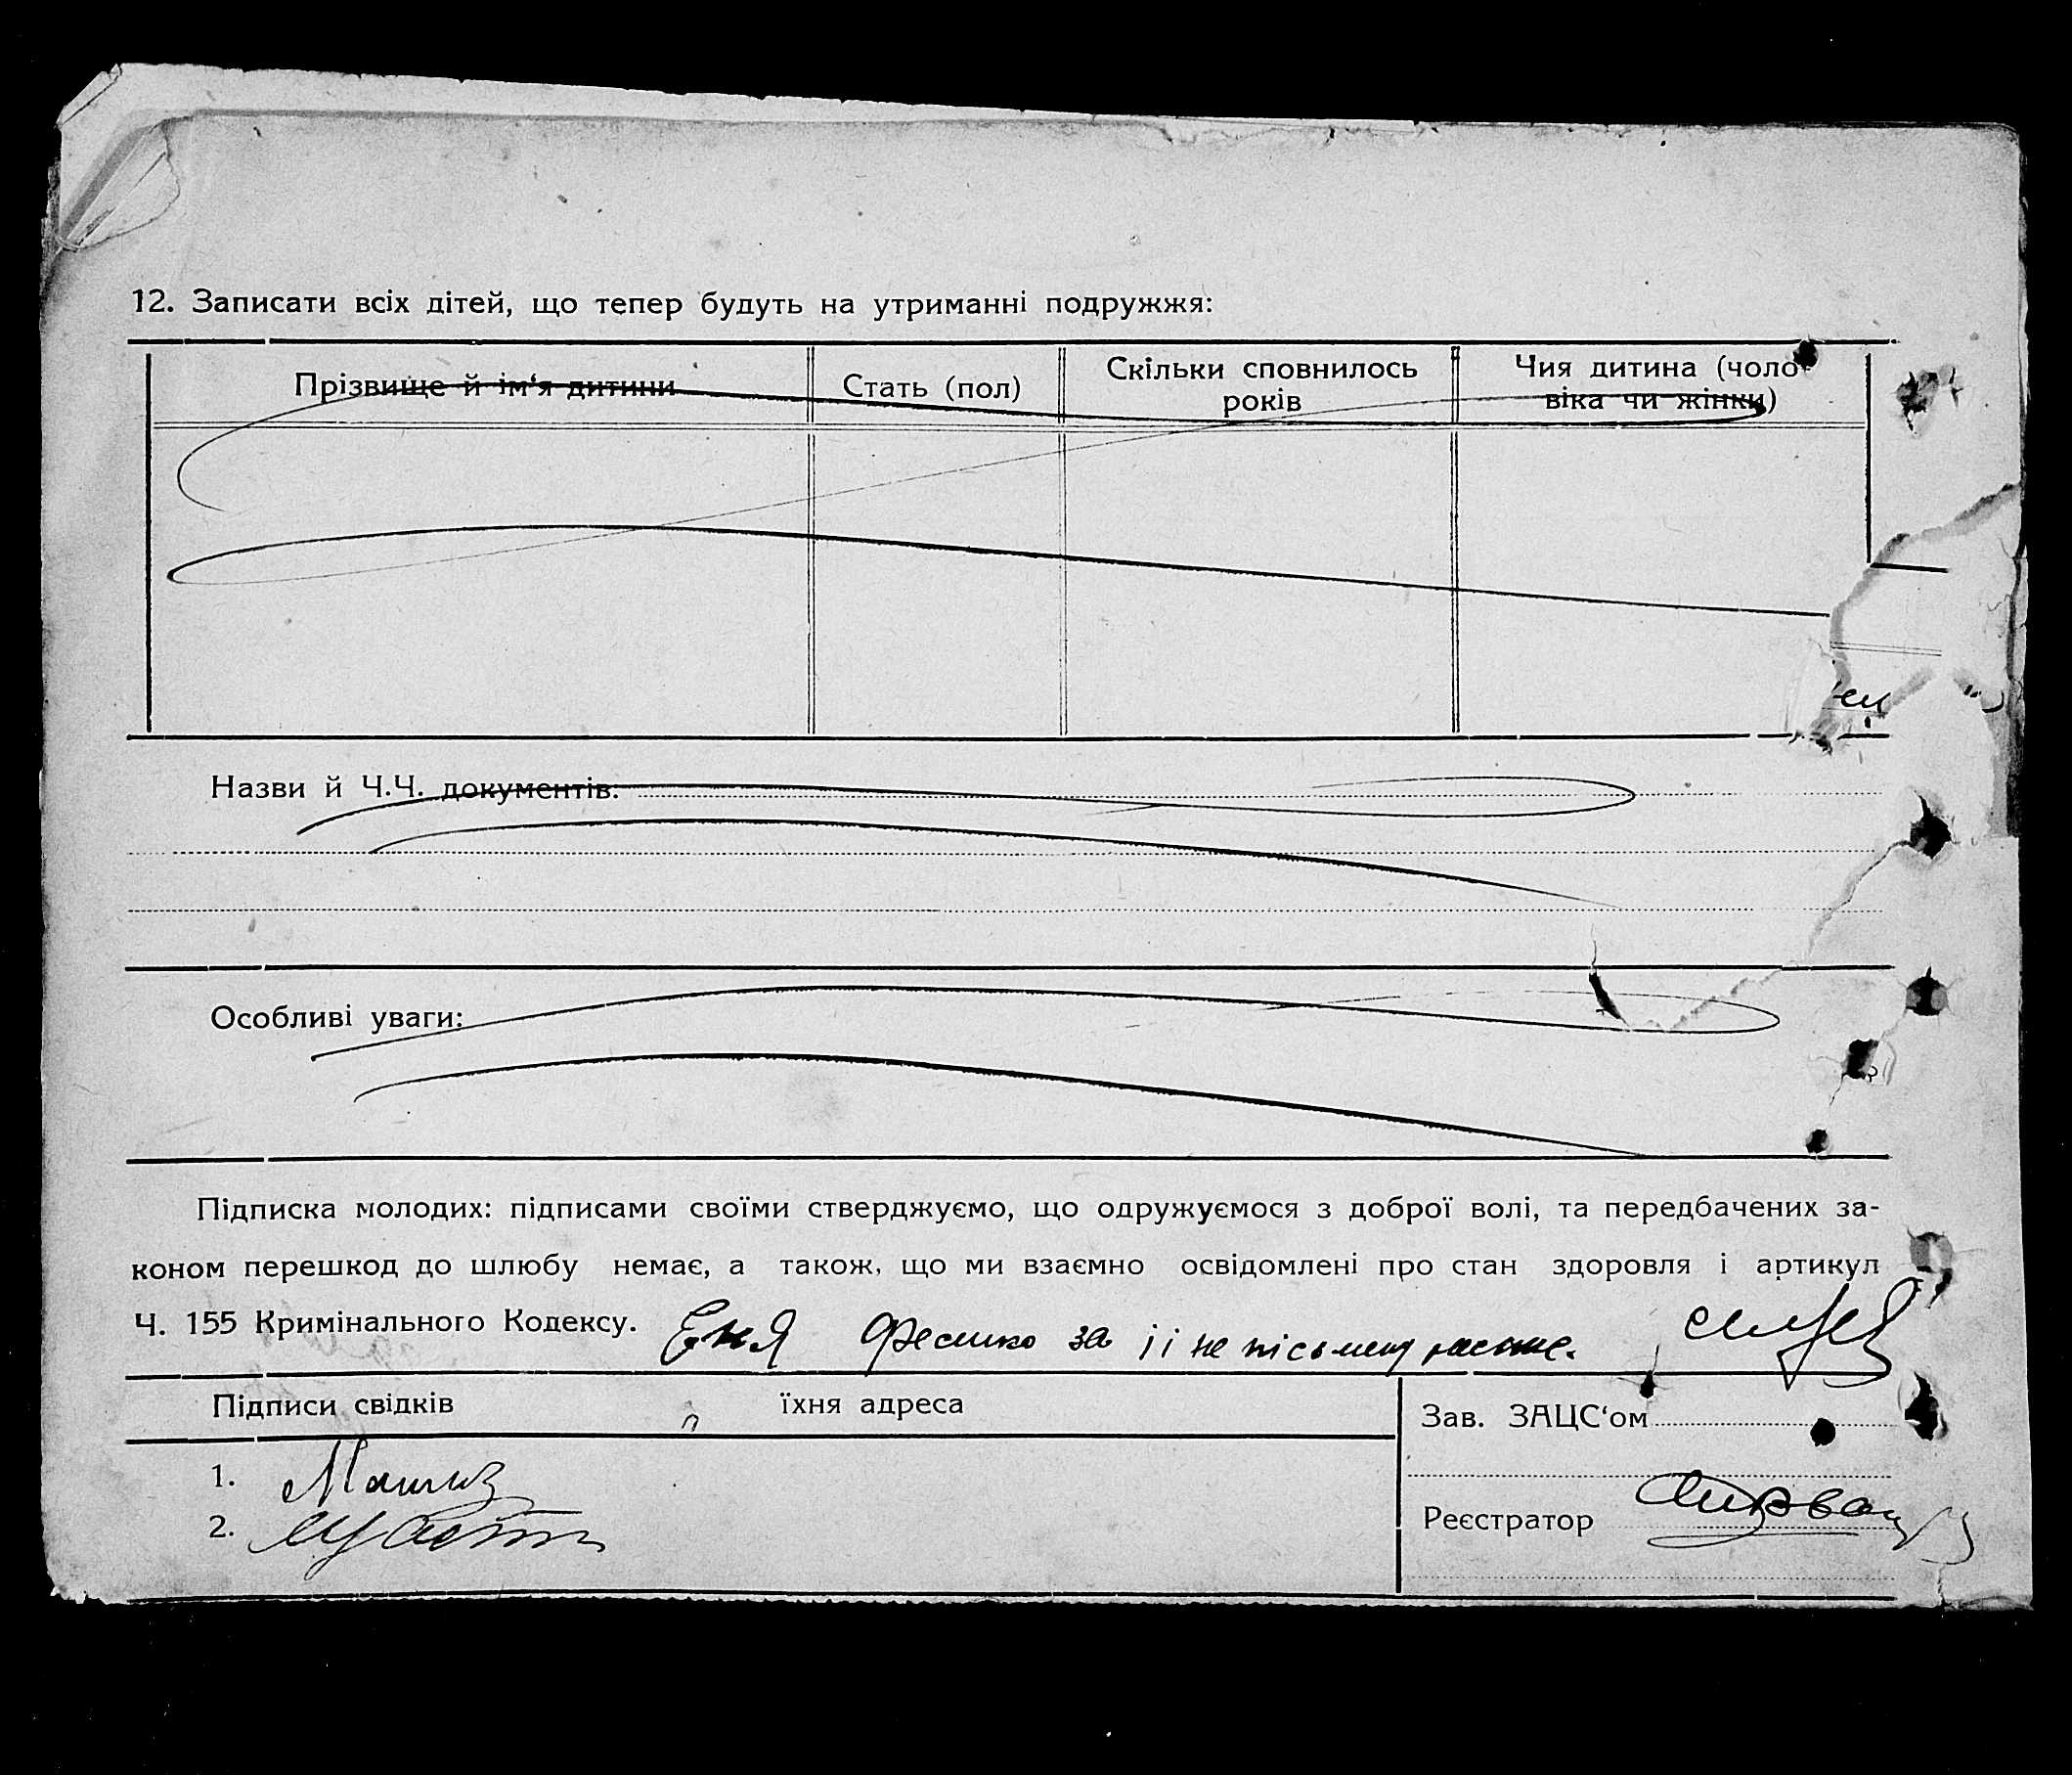 12. Записати всіх дітей, що тепер будуть на утриманні подружжя:
Прізвище й ім‘я дитини
Стать (пол)
Скільки сповнилось
років
Чия дитина (чоло
віка чи жінки)
Назви й Ч.Ч. документів:
Особливі уваги:
Підписка молодих: підписами своїми стверджуємо, що одружуємося з доброї волі, та передбачених за-
коном перешкод до шлюбу немає, а також, що ми взаємно освідомлені про стан здоровля і артикул
Ч. 155 Кримінального Кодексу. за її не письмену
Підписи свідків їхня адреса
Зав. ЗАЦС‘ом
1.
2.
Реєстратор